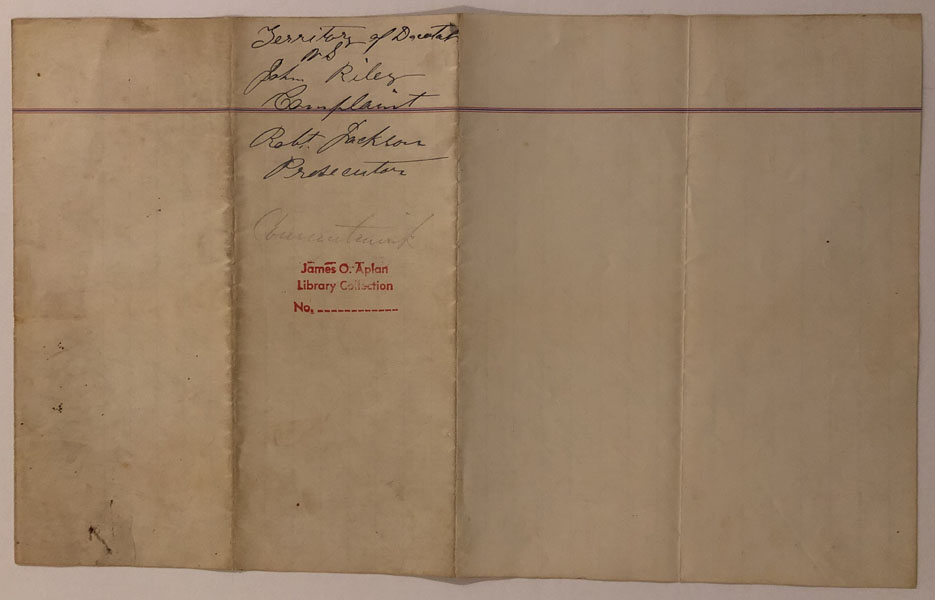 Territory of Dacotah
vs
John Riley
Complaint
Robt. Jackson
Prosecutor
James O. Aplan
Library Collection
No.